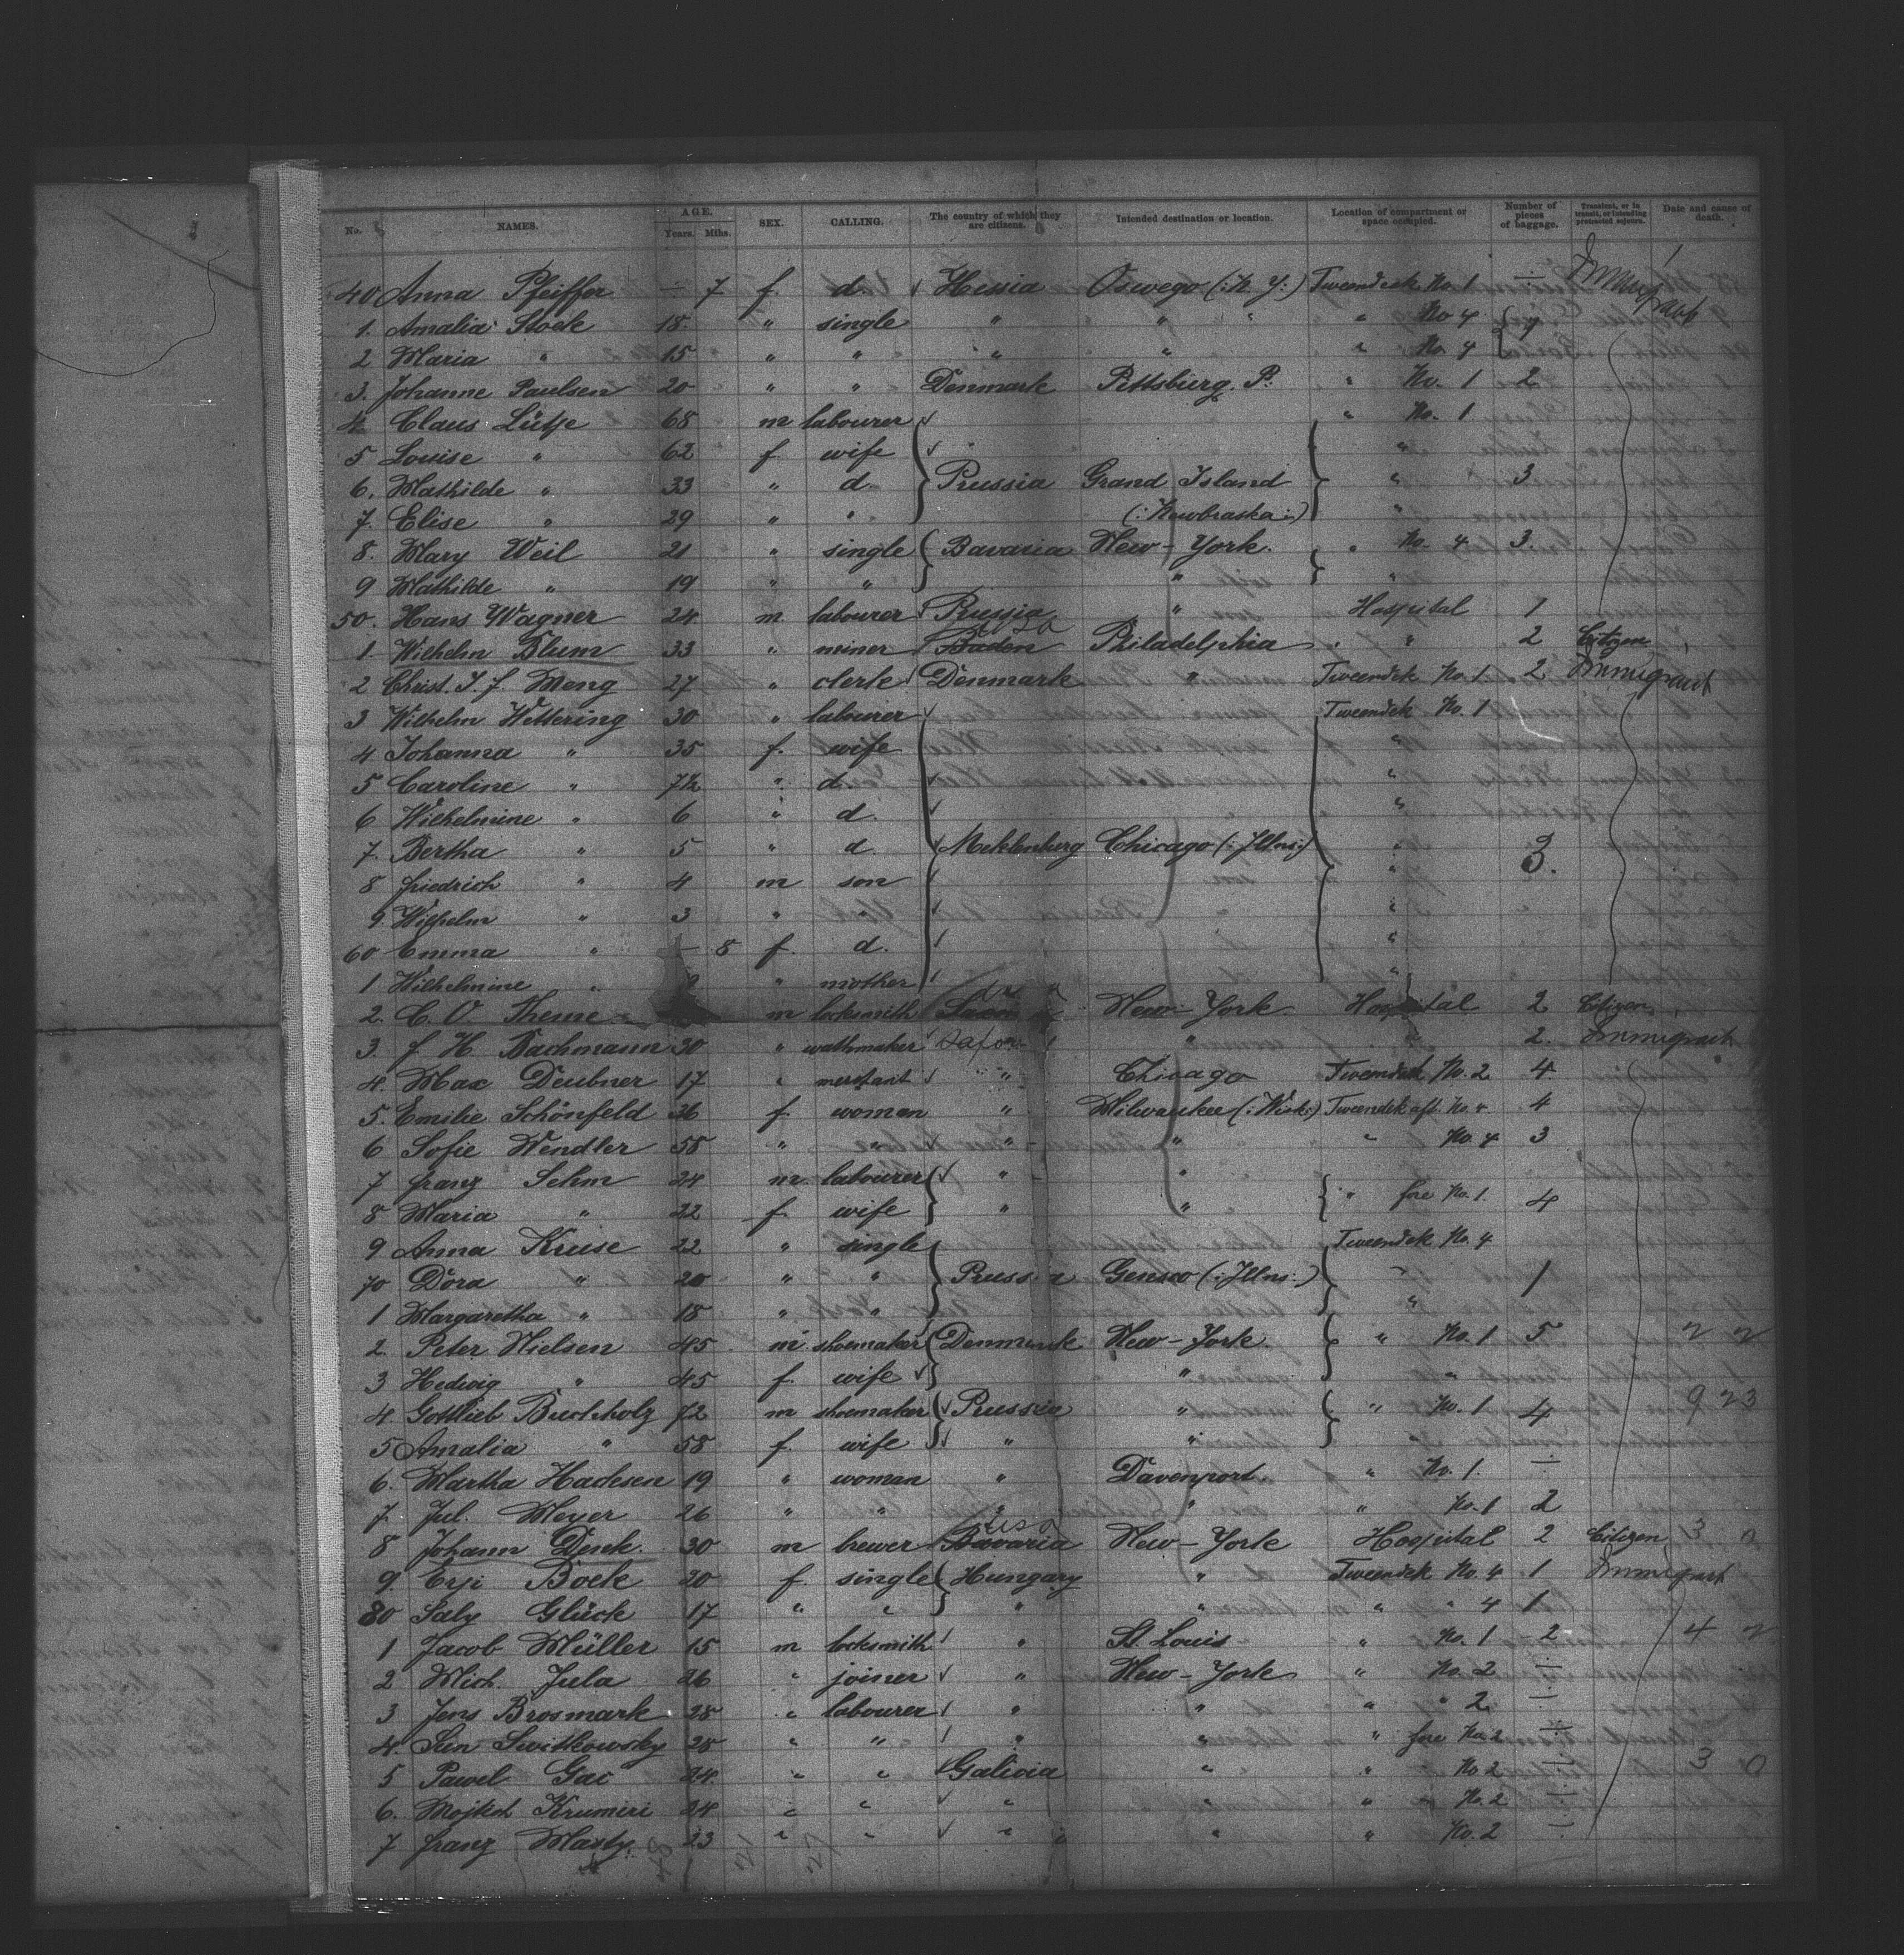 No. NAMES. AGE. Years. Mths. SEX. CALLING. The country of which they are citizens. Intended destination or location. Location of compartment or space occupied. Number of pieces of baggage. Transient, or in transit, or intending protracted sojourn. Date and cause of death.
40 Anna Pfeiffer ÷ 7 f. d. Hessia Oswego (: N. Y :) Tweendeck No. 1 ÷ Immigrant
1. Amalia Stock 18. " single " " " No 4
2 Maria " 15 " " " " " No. 4
3. Johanne Paulsen 20 " " Denmark Pittsburg. P. " No. 1 2
4. Claus Lütje 68 m labourer " No. 1
5 Louise " 62 f. wife "
6. Mathilde " 33 " d. Prussia Grand Island " 3
7. Elise " 29 " " (: Newbraska :) "
8. Mary Weil 21 " single Bavaria New-York. " No. 4 3.
9 Mathilde " 19 " " " "
50. Hans Wagner 24 m. labourer Prussia " Hospital 1
1. Wilhelm Blum 33 " miner Baden Philadelphia " 2 Citizen
2 Christ. J. f. Meng 27 " clerk Denmark " Tweendek No. 1 2 Immigrant
3 Wilhelm Wettering 30 " labourer Tweendek No. 1
4 Johanna " 35 f. wife "
5 Caroline " 7½ " d. "
6 Wilhelmine " 6 " d. "
7. Bertha " 5 " d. Meklenburg Chicago (: Illns :) " 3.
8 friedrich " 4 m son "
9. Wilhelm " 3 " " "
60 Emma " — 8 f. d. "
1 Wilhelmine " " mother "
2. C. O. Theme m locksmith New-York Hospital 2 Citizen
3. f. H. Bachmann 30 " wathmaker " " 2. Immigrant
4. Max Deubner 17 " merchant " Chicago Tweendek No. 2 4
5. Emilie Schönfeld 36 f. woman " Milwaukee (: Wisk :) Tweendek aft. No. 4 4
6 Sofie Wendler 58 " " " " " No. 4 3
7 franz Sehm 24 m. labourer " " " fore No. 1. 4
8 Maria " 22 f. wife " "
9 Anna Kruse 22 " single Tweendek No. 4
70 Dora " 20 " " Prussia Geneseo (: Illns :) " 1
1 Margaretha " 18 " " "
2. Peter Nielsen 45 m shoemaker Denmark New-York. " No. 1 5
3 Hedwig " 45 f. wife " "
4. Gottlieb Buchholz 72 m shoemaker Prussia " " No. 1 4 9 23
5 Amalia " 58 f. wife " " "
6. Martha Hacksen 19 " woman " Davenport. " No. 1. ÷
7. Jul. Meyer 26 " " " " " No. 1 2
8 Johann Denk. 30 m brewer Bavaria New-York Hospital 2 Citizen 3 0
9. Erji Bock 20 f. single Hungary " Tweendek No. 4 1 Immigrant
80 Saly Glück 17 " " " " " " 4 1
1 Jacob Müller 15 m locksmith " St. Louis " No. 1 2 4 2
2 Mich. Jula 26 " joiner " New-York " No. 2 ÷
3 Jens Brosmark 28 " labourer " " " " 2 ÷
4. Sen Switkowsky 28 " " " " " fore No. 2 ÷
5 Pawel Gac 24. " " Galicia " " No 2 ÷ 3 0
6. Mojkch Krumiri 24 " " " " " No. 2 ÷
7 franz Masty. 23 " " " " " No. 2 ÷